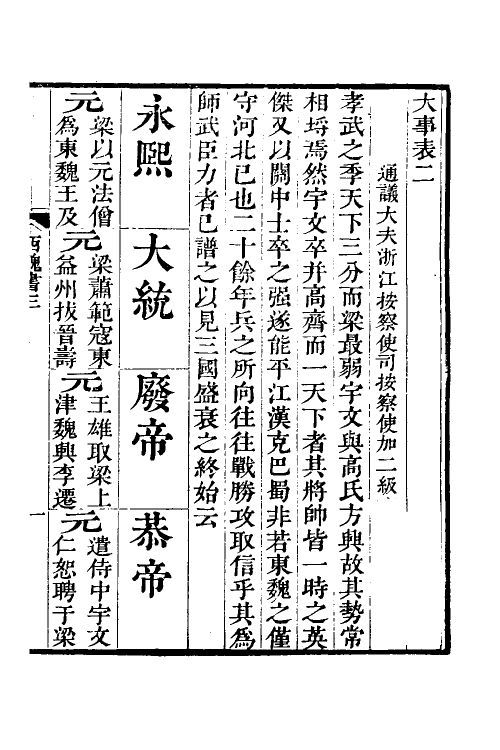 大事表二
通議大夫浙江按察使司按察使加二級
孝武之季天下三分而梁最弱宇文與高氏方興故其勢常
相埓焉然宇文卒并高齊而一天下者其將帥皆一時之英
傑又以關中士卒之强遂能平江漢克巴蜀非若東魏之僅
守河北已也二十餘年兵之所向往往戰勝攻取信乎其爲
師武臣力者已譜之以見三國盛衰之終始云
永熙
大統
廢帝
恭帝
元
梁以元法僧
爲東魏王及
元
梁蕭範寇東
益州拔晉壽
元
王雄取梁上
津魏興李遷
元
遣侍中宇文
仁恕聘于梁
西魏書三
一